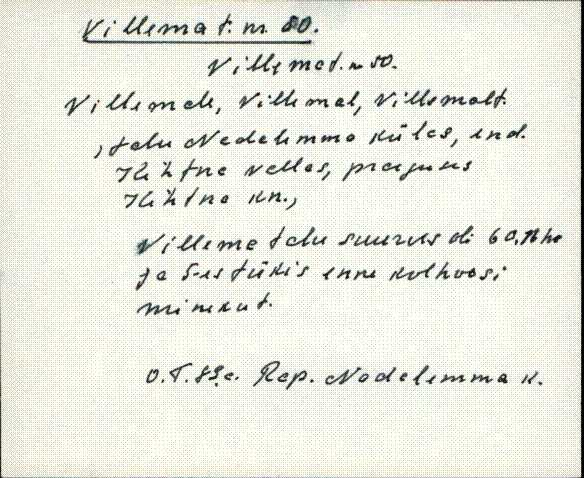 Villema t. nr 80.
Villema t. nr 50.
Villemale, Villemal, Villemalt.
, talu Nedelemma külas, end.
Kihtna vallas, praegus
Kihtna kn.,
Villema talu suurus oli 60,16 ha
ja 5-es tükis enne kolhoosi
minekut.
O.T. 89.a. Rap. Nadalemma k.